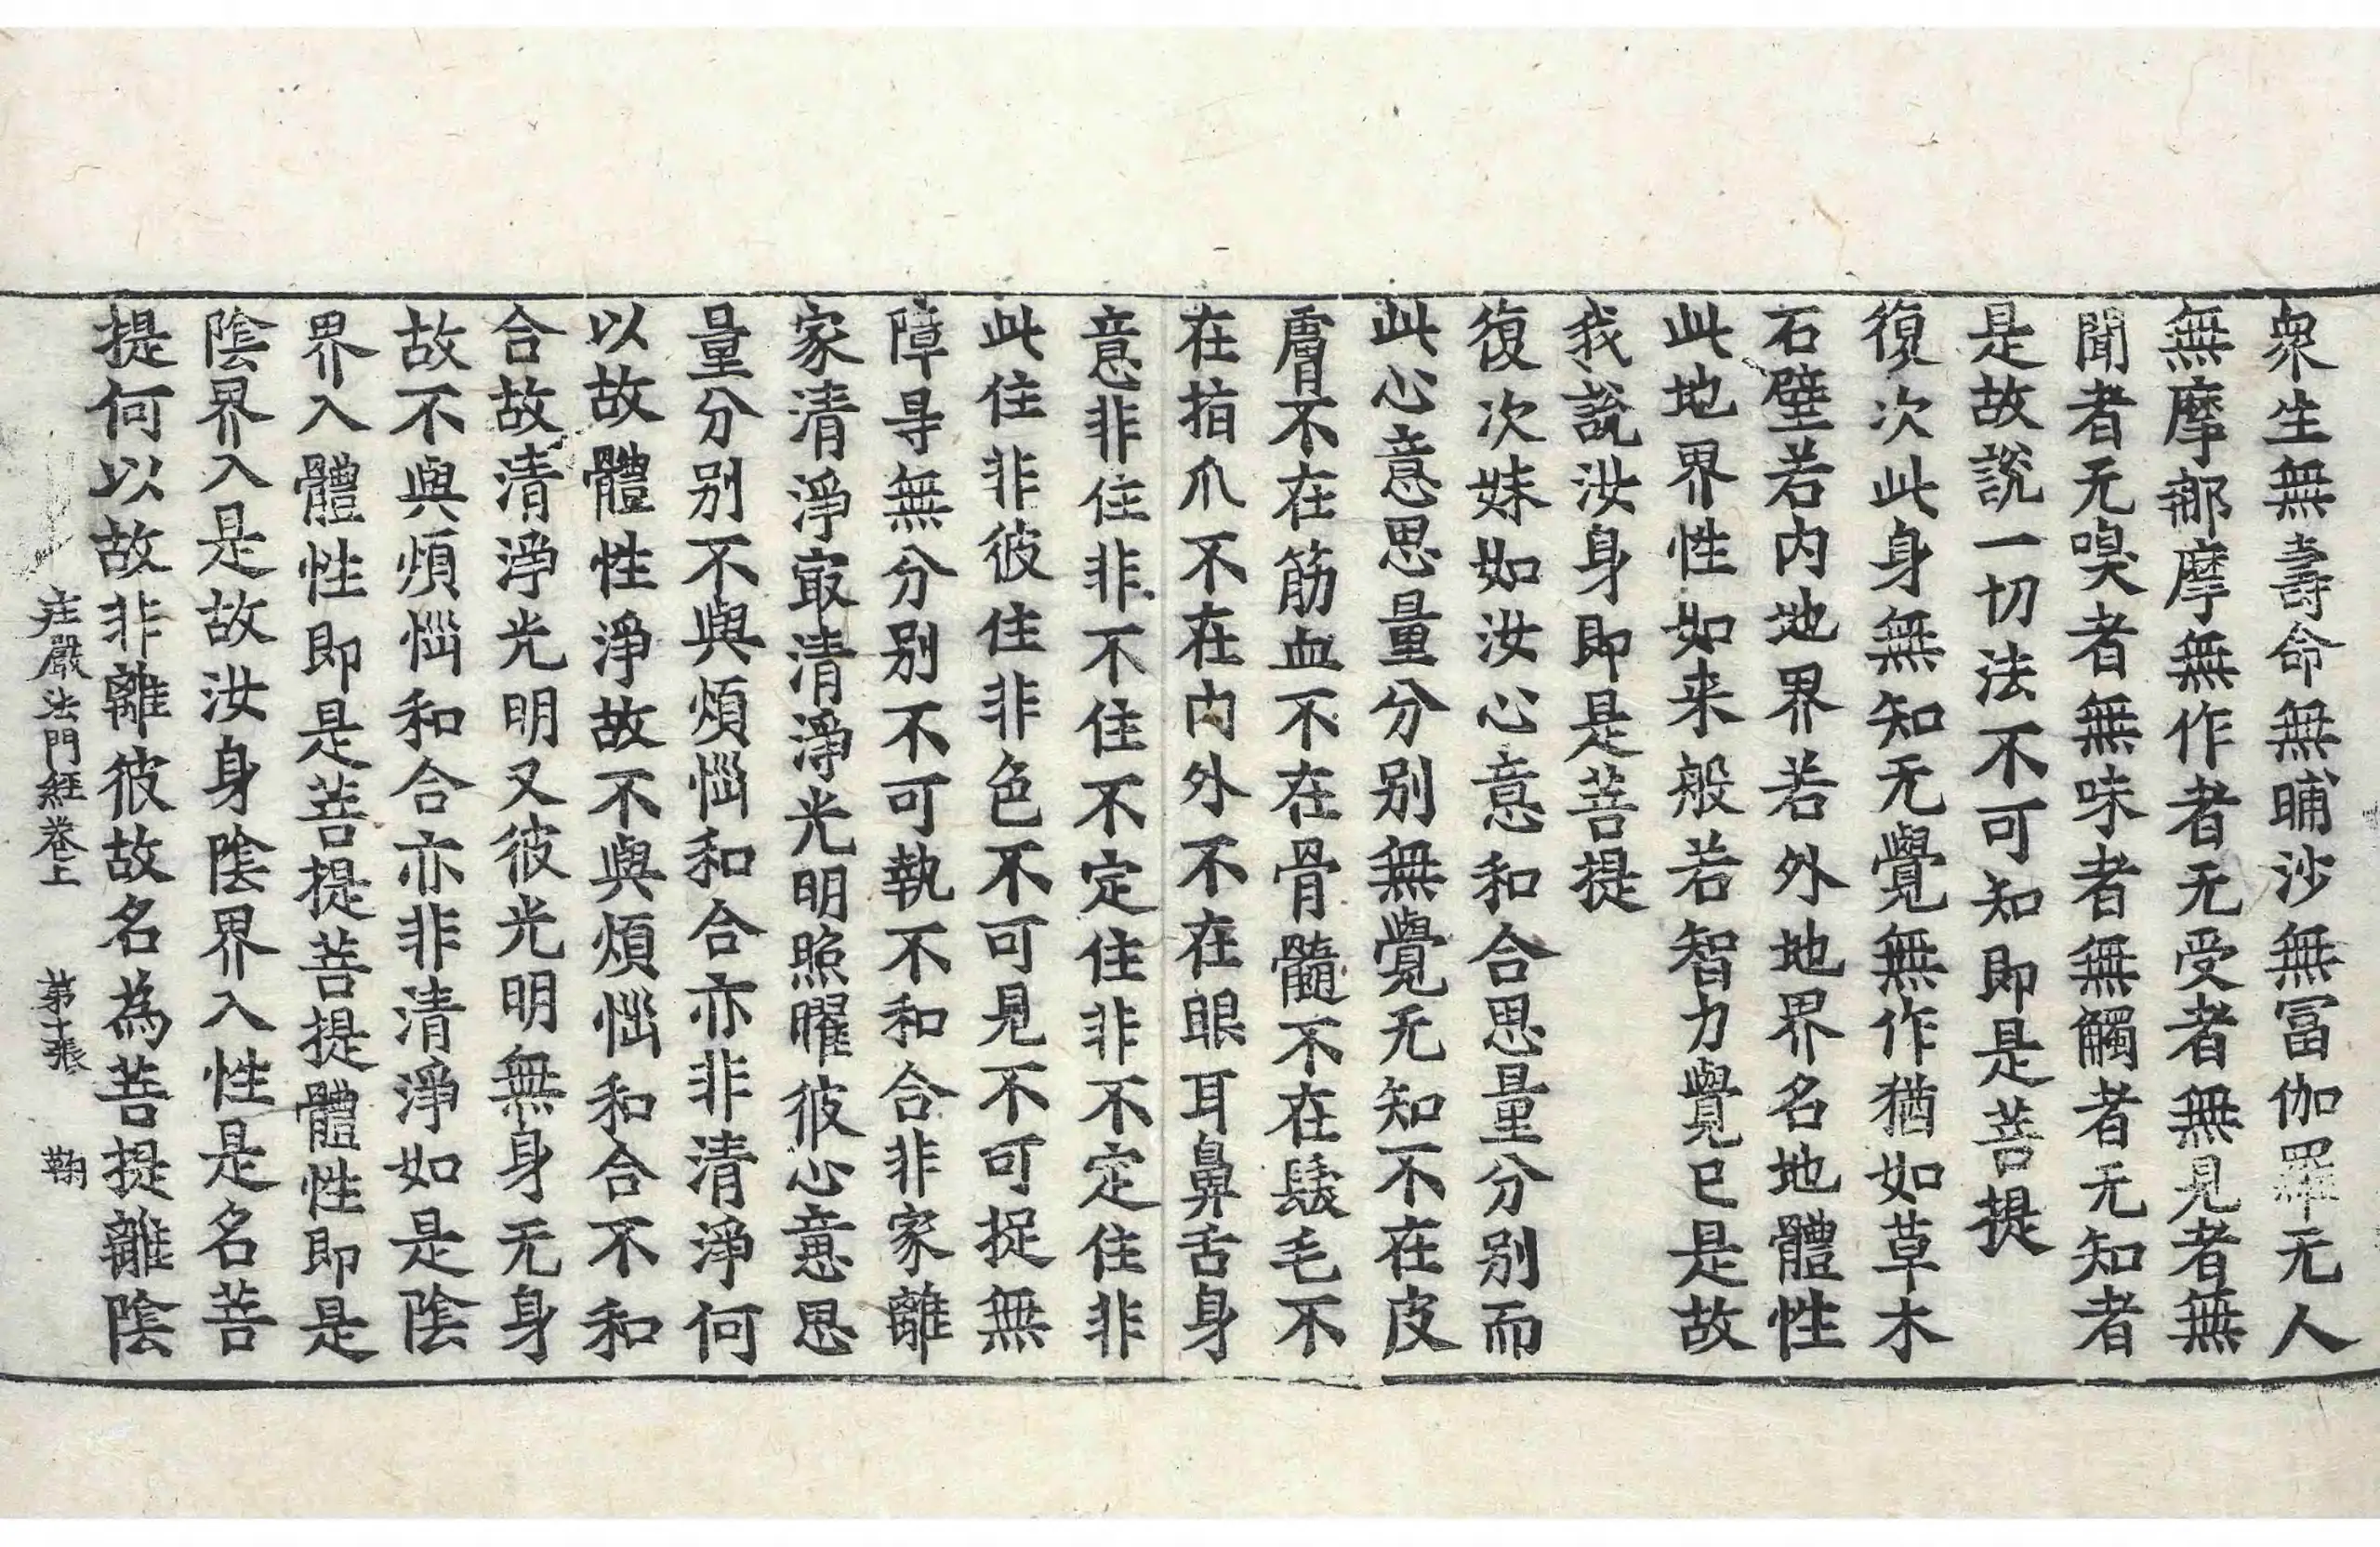 衆生無壽命無晡沙無冨伽羅无人
無摩那摩無作者无受者無見者無
聞者无嗅者無味者無觸者无知者
是故說一切法不可知即是菩提
復次此身無知无覺無作猶如草木
石壁若内地界若外地界名地體性
此地界性如来般若智力覺已是故
我說汝身即是菩提
復次妹如汝心意和合思量分别而
此心意思量分别無覺无知不在皮
膚不在筋血不在骨髓不在髮毛不
在指爪不在内外不在眼耳鼻舌身
意非住非不住不定住非不定住非
此住非彼住非色不可見不可捉無
障㝵無分别不可執不和合非家離
家清淨㝡清淨光明照曜彼心意思
量分别不與煩惱和合亦非清淨何
以故體性淨故不與煩惱和合不和
合故清淨光明又彼光明無身无身
故不與煩惱和合亦非清淨如是陰
界入體性即是菩提菩提體性即是
陰界入是故汝身陰界入性是名菩
提何以故非離彼故名為菩提離陰
庄嚴法門經卷上　第十張　鞠